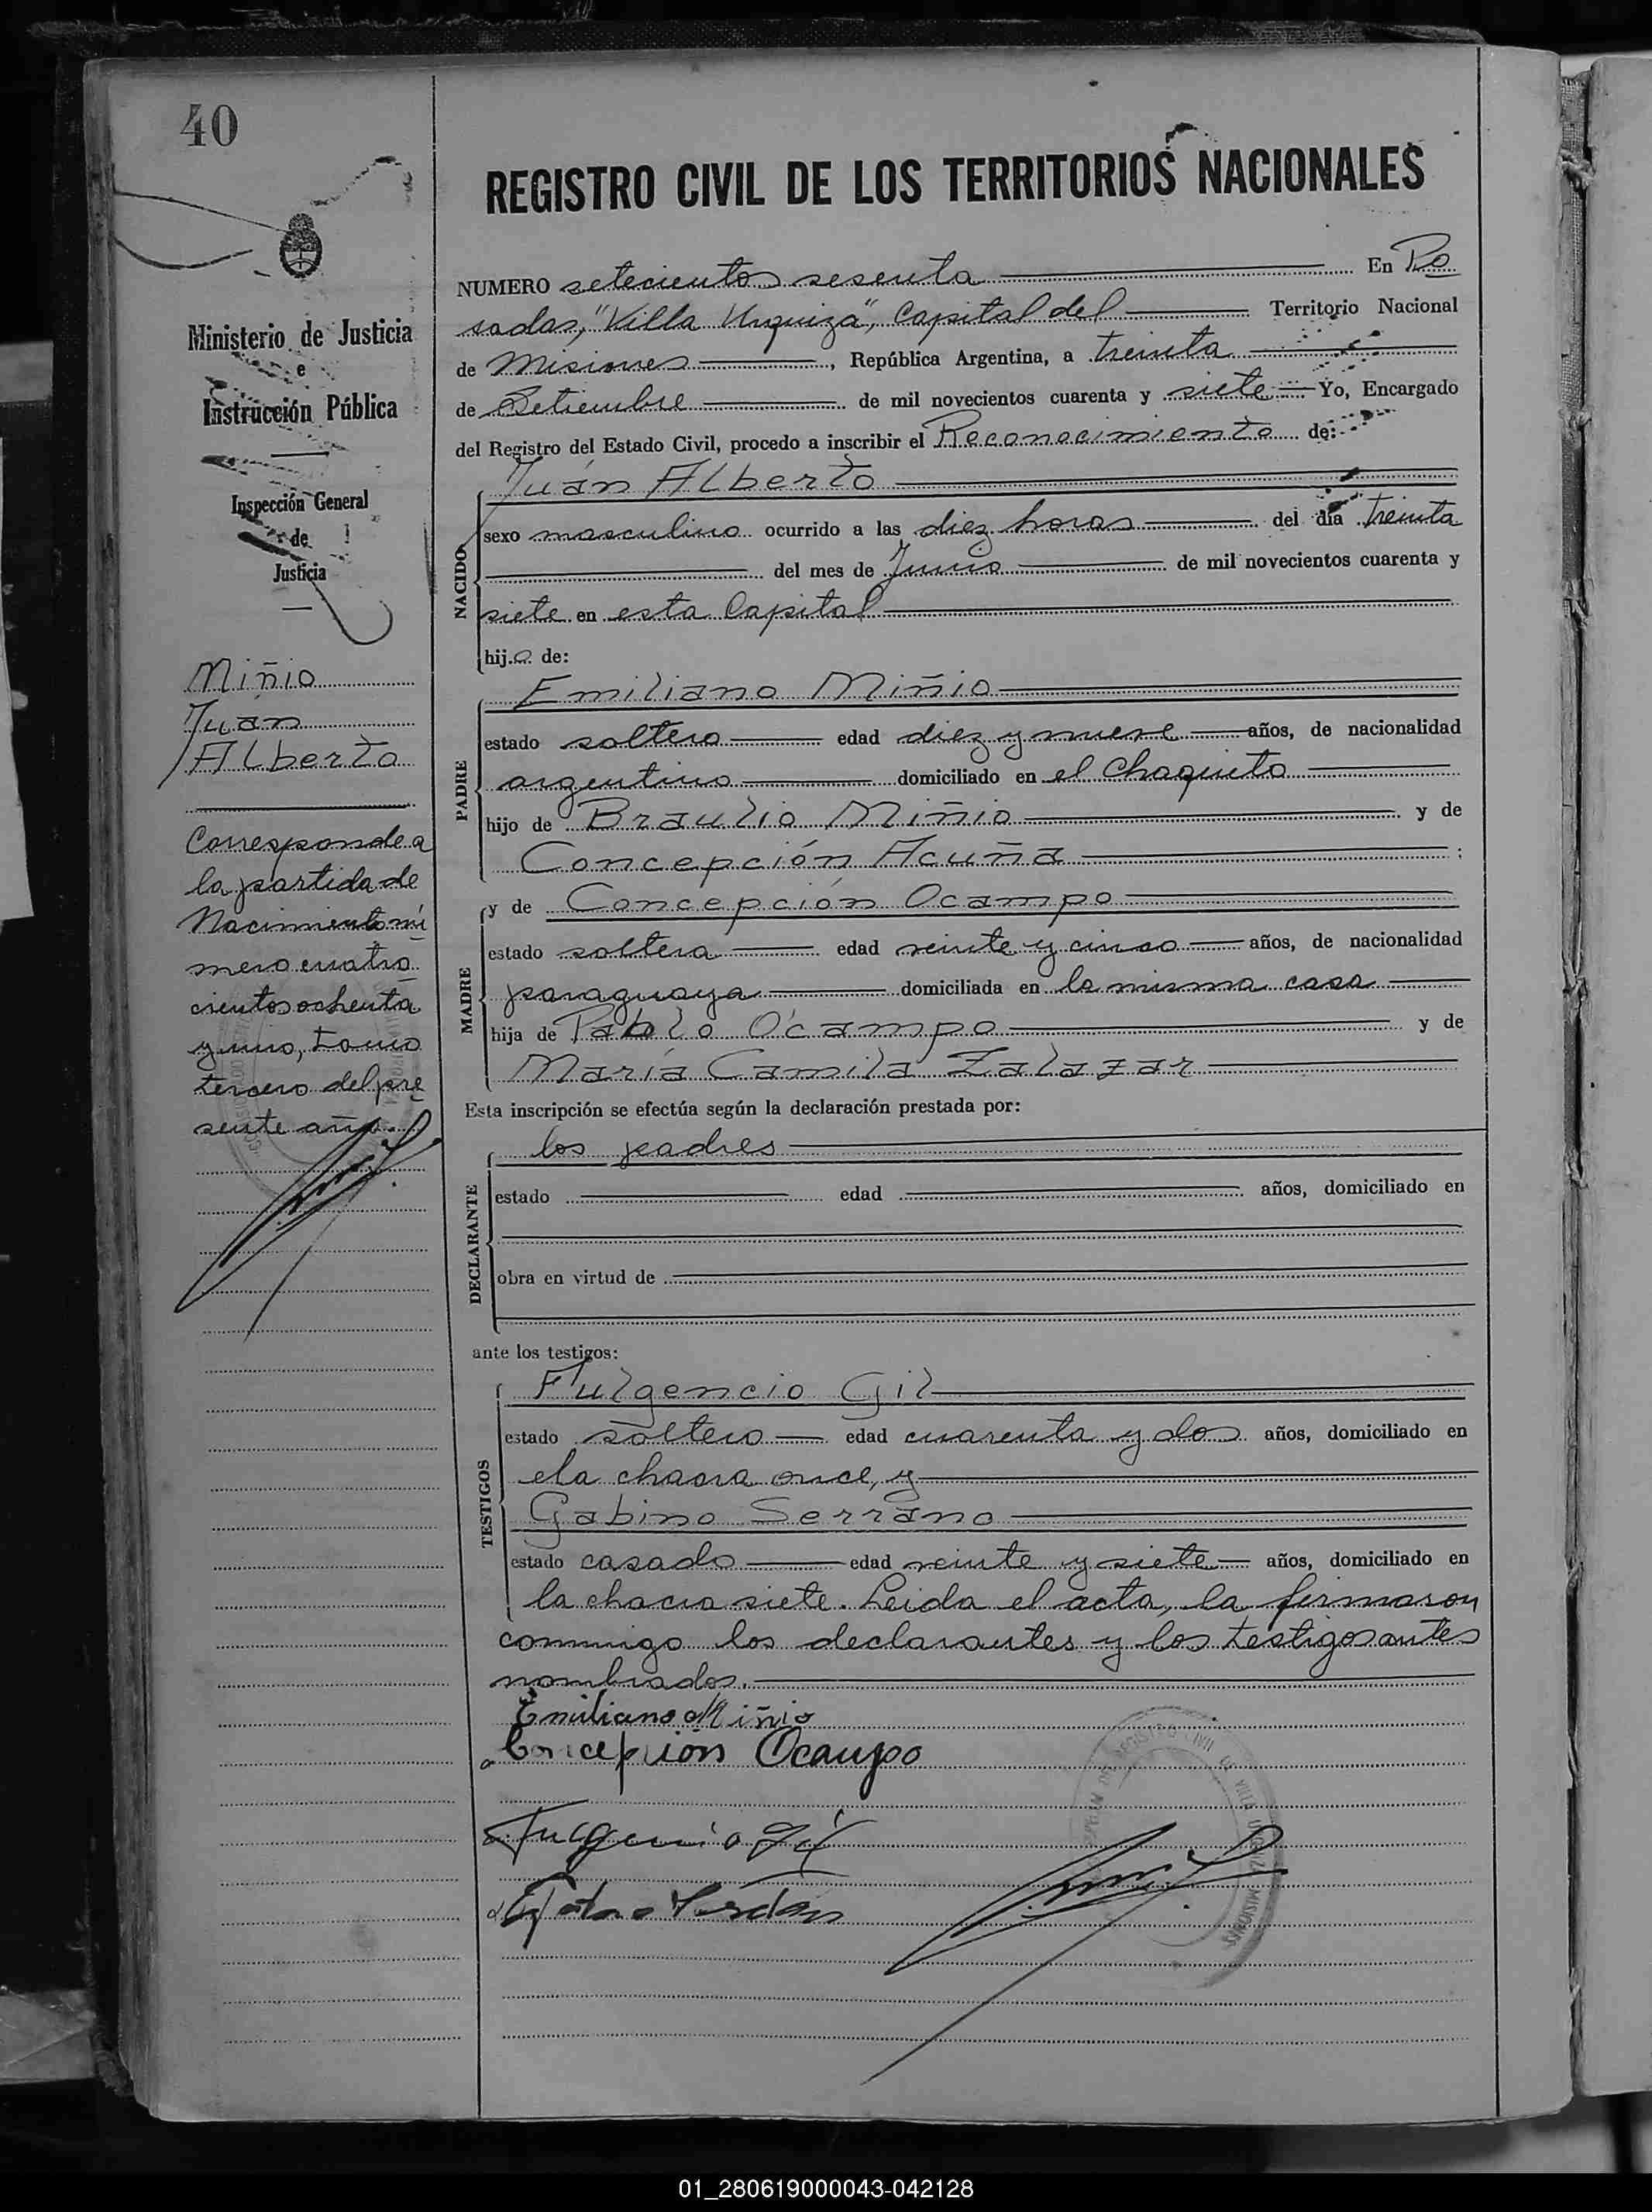 40
REGISTRO CIVIL DE LOS TERRITORIOS NACIONALES
Ministerio de Justicia
e
Instrucción Pública
Inspección General
de
Justicia
Miñio
Juan
Alberto
Corresponde a
la partida de
Nacimiento nú
mero cuatro
cientos ochenta
y uno, tomo
tercero del pre
sente año.
NUMERO setecientos sesenta En Po
sadas, "Villa Urquiza", Capital del Territorio Nacional
de Misiones, República Argentina, a treinta
de Setiembre de mil novecientos cuarenta y siete Yo, Encargado
del Registro del Estado Civil, procedo a inscribir el Reconocimiento de:
Juan Alberto
NACIDO
sexo masculino ocurrido a las diez horas del día treinta
del mes de Junio de mil novecientos cuarenta y
siete en esta Capital
hijo de:
PADRE
Emiliano Miñio
estado soltero edad diez y nueve años, de nacionalidad
argentino domiciliado en el Chaquito
hijo de Braulio Miñio y de
Concepción Acuña;
MADRE
y de Concepción Ocampo
estado soltera edad veinte y cinco años, de nacionalidad
paraguaya domiciliada en la misma casa
hija de Pablo Ocampo y de
María Camila Zalazar
Esta inscripción se efectúa según la declaración prestada por:
DECLARANTE
los padres
estado edad años, domiciliado en
obra en virtud de
ante los testigos:
TESTIGOS
Fulgencio Gil
estado soltero edad cuarenta y dos años, domiciliado en
ela chacra once, y
Gabino Serrano
estado casado edad veinte y siete años, domiciliado en
la chacra siete. Leida el acta, la firmaron
conmigo los declarantes y los testigos antes
nombrados.
Emiliano Miñio
Concepcion Ocampo
Fulgencio Gil
01_280619000043-042128